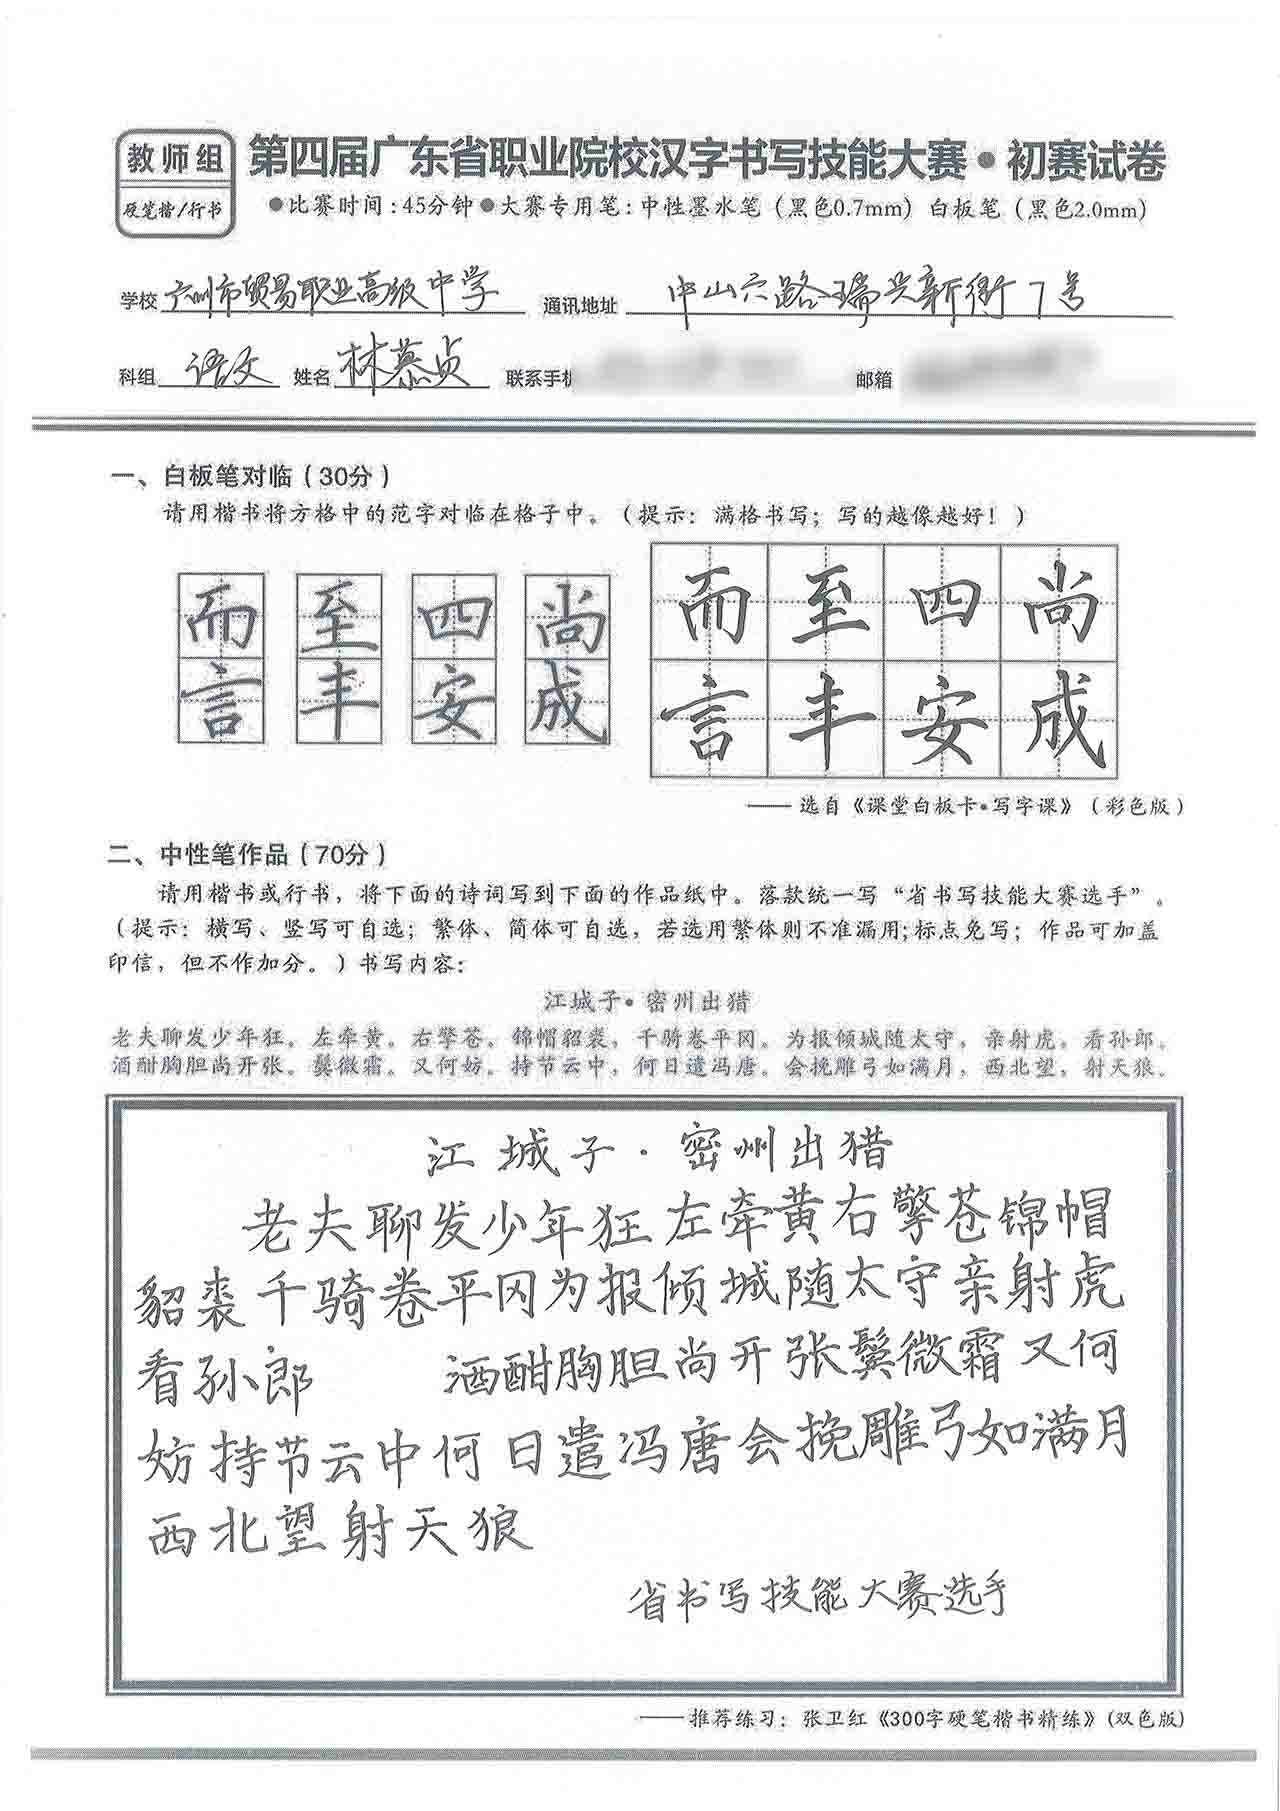 教师组
硬笔楷/行书
第四届广东省职业院校汉字书写技能大赛·初赛试卷
●比赛时间:45分钟●大赛专用笔:中性墨水笔（黑色0.7mm）白板笔（黑色2.0mm）
学校 广州市贸易职业高级中学 通讯地址 中山六路瑞兴新街7号
科组 语文 姓名 林慕贞 联系手机 邮箱
一、白板笔对临（30分）
请用楷书将方格中的范字对临在格子中。（提示：满格书写；写的越像越好！）
而 至 四 尚 而 至 四 尚
言 丰 安 成 言 丰 安 成
——选自《课堂白板卡·写字课》（彩色版）
二、中性笔作品（70分）
请用楷书或行书，将下面的诗词写到下面的作品纸中。落款统一写“省书写技能大赛选手”。
（提示：横写、竖写可自选；繁体、简体可自选，若选用繁体则不准漏用;标点免写；作品可加盖
印信，但不作加分。）书写内容：
江城子·密州出猎
老夫聊发少年狂。左牵黄。右擎苍。锦帽貂裘，千骑卷平冈。为报倾城随太守，亲射虎。看孙郎。
酒酣胸胆尚开张。鬓微霜。又何妨。持节云中，何日遣冯唐。会挽雕弓如满月，西北望，射天狼。
江城子·密州出猎
老夫聊发少年狂左牵黄右擎苍锦帽
貂裘千骑卷平冈为报倾城随太守亲射虎
看孙郎 酒酣胸胆尚开张鬓微霜又何
妨持节云中何日遣冯唐会挽雕弓如满月
西北望射天狼
省书写技能大赛选手
——推荐练习：张卫红《300字硬笔楷书精练》(双色版)